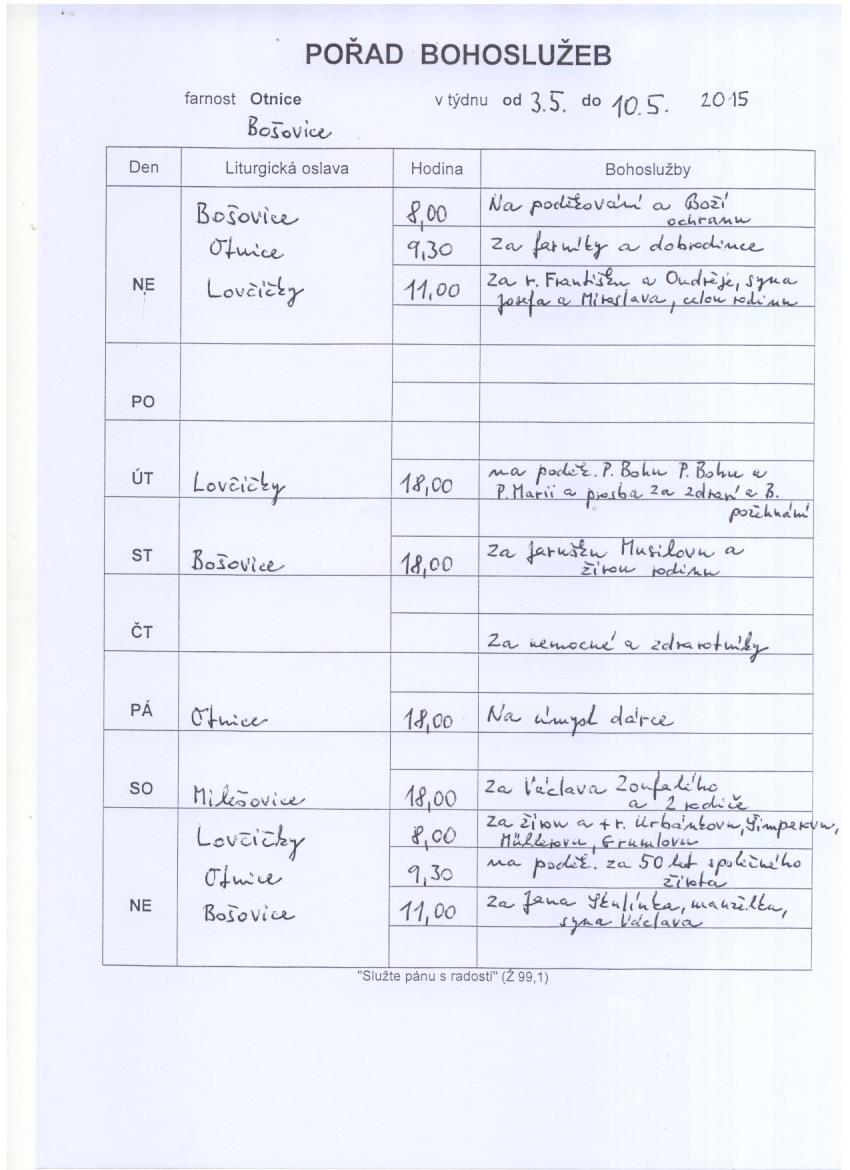 POŘAD BOHOSLUŽEB
farnost Otnice v týdnu od 3.5. do 10.5. 2015
Bošovice
Den Liturgická oslava Hodina Bohoslužby
Bošovice 8,00 Na poděkování a Boží
ochranu
Otnice 9,30 Za farníky a dobrodince
NE Lovčičky 11,00 Za r. Františku a Ondřeje, syna
Josefa a Miroslava, celou rodinu
PO
na poděk. P. Bohu P. Bohu a
ÚT Lovčičky 18,00 P. Marii a prosba za zdraví a B.
požehnání
ST Bošovice 18,00 Za Jarušku Musilovu a
živou rodinu
ČT
Za nemocné a zdravotníky
PÁ Otnice 18,00 Na úmysl dárce
SO Milešovice 18,00 Za Václava Zoufalého
a 2 rodiče
Lovčičky 8,00 Za živou a + r. Urbánkovu, Šimperovu,
Müllerovu, Grumlovu
Otnice 9,30 na poděk. za 50 let společného
života
NE Bošovice 11,00 Za Jana Skulínka, manželku,
syna Václava
"Služte pánu s radostí" (Ž 99,1)